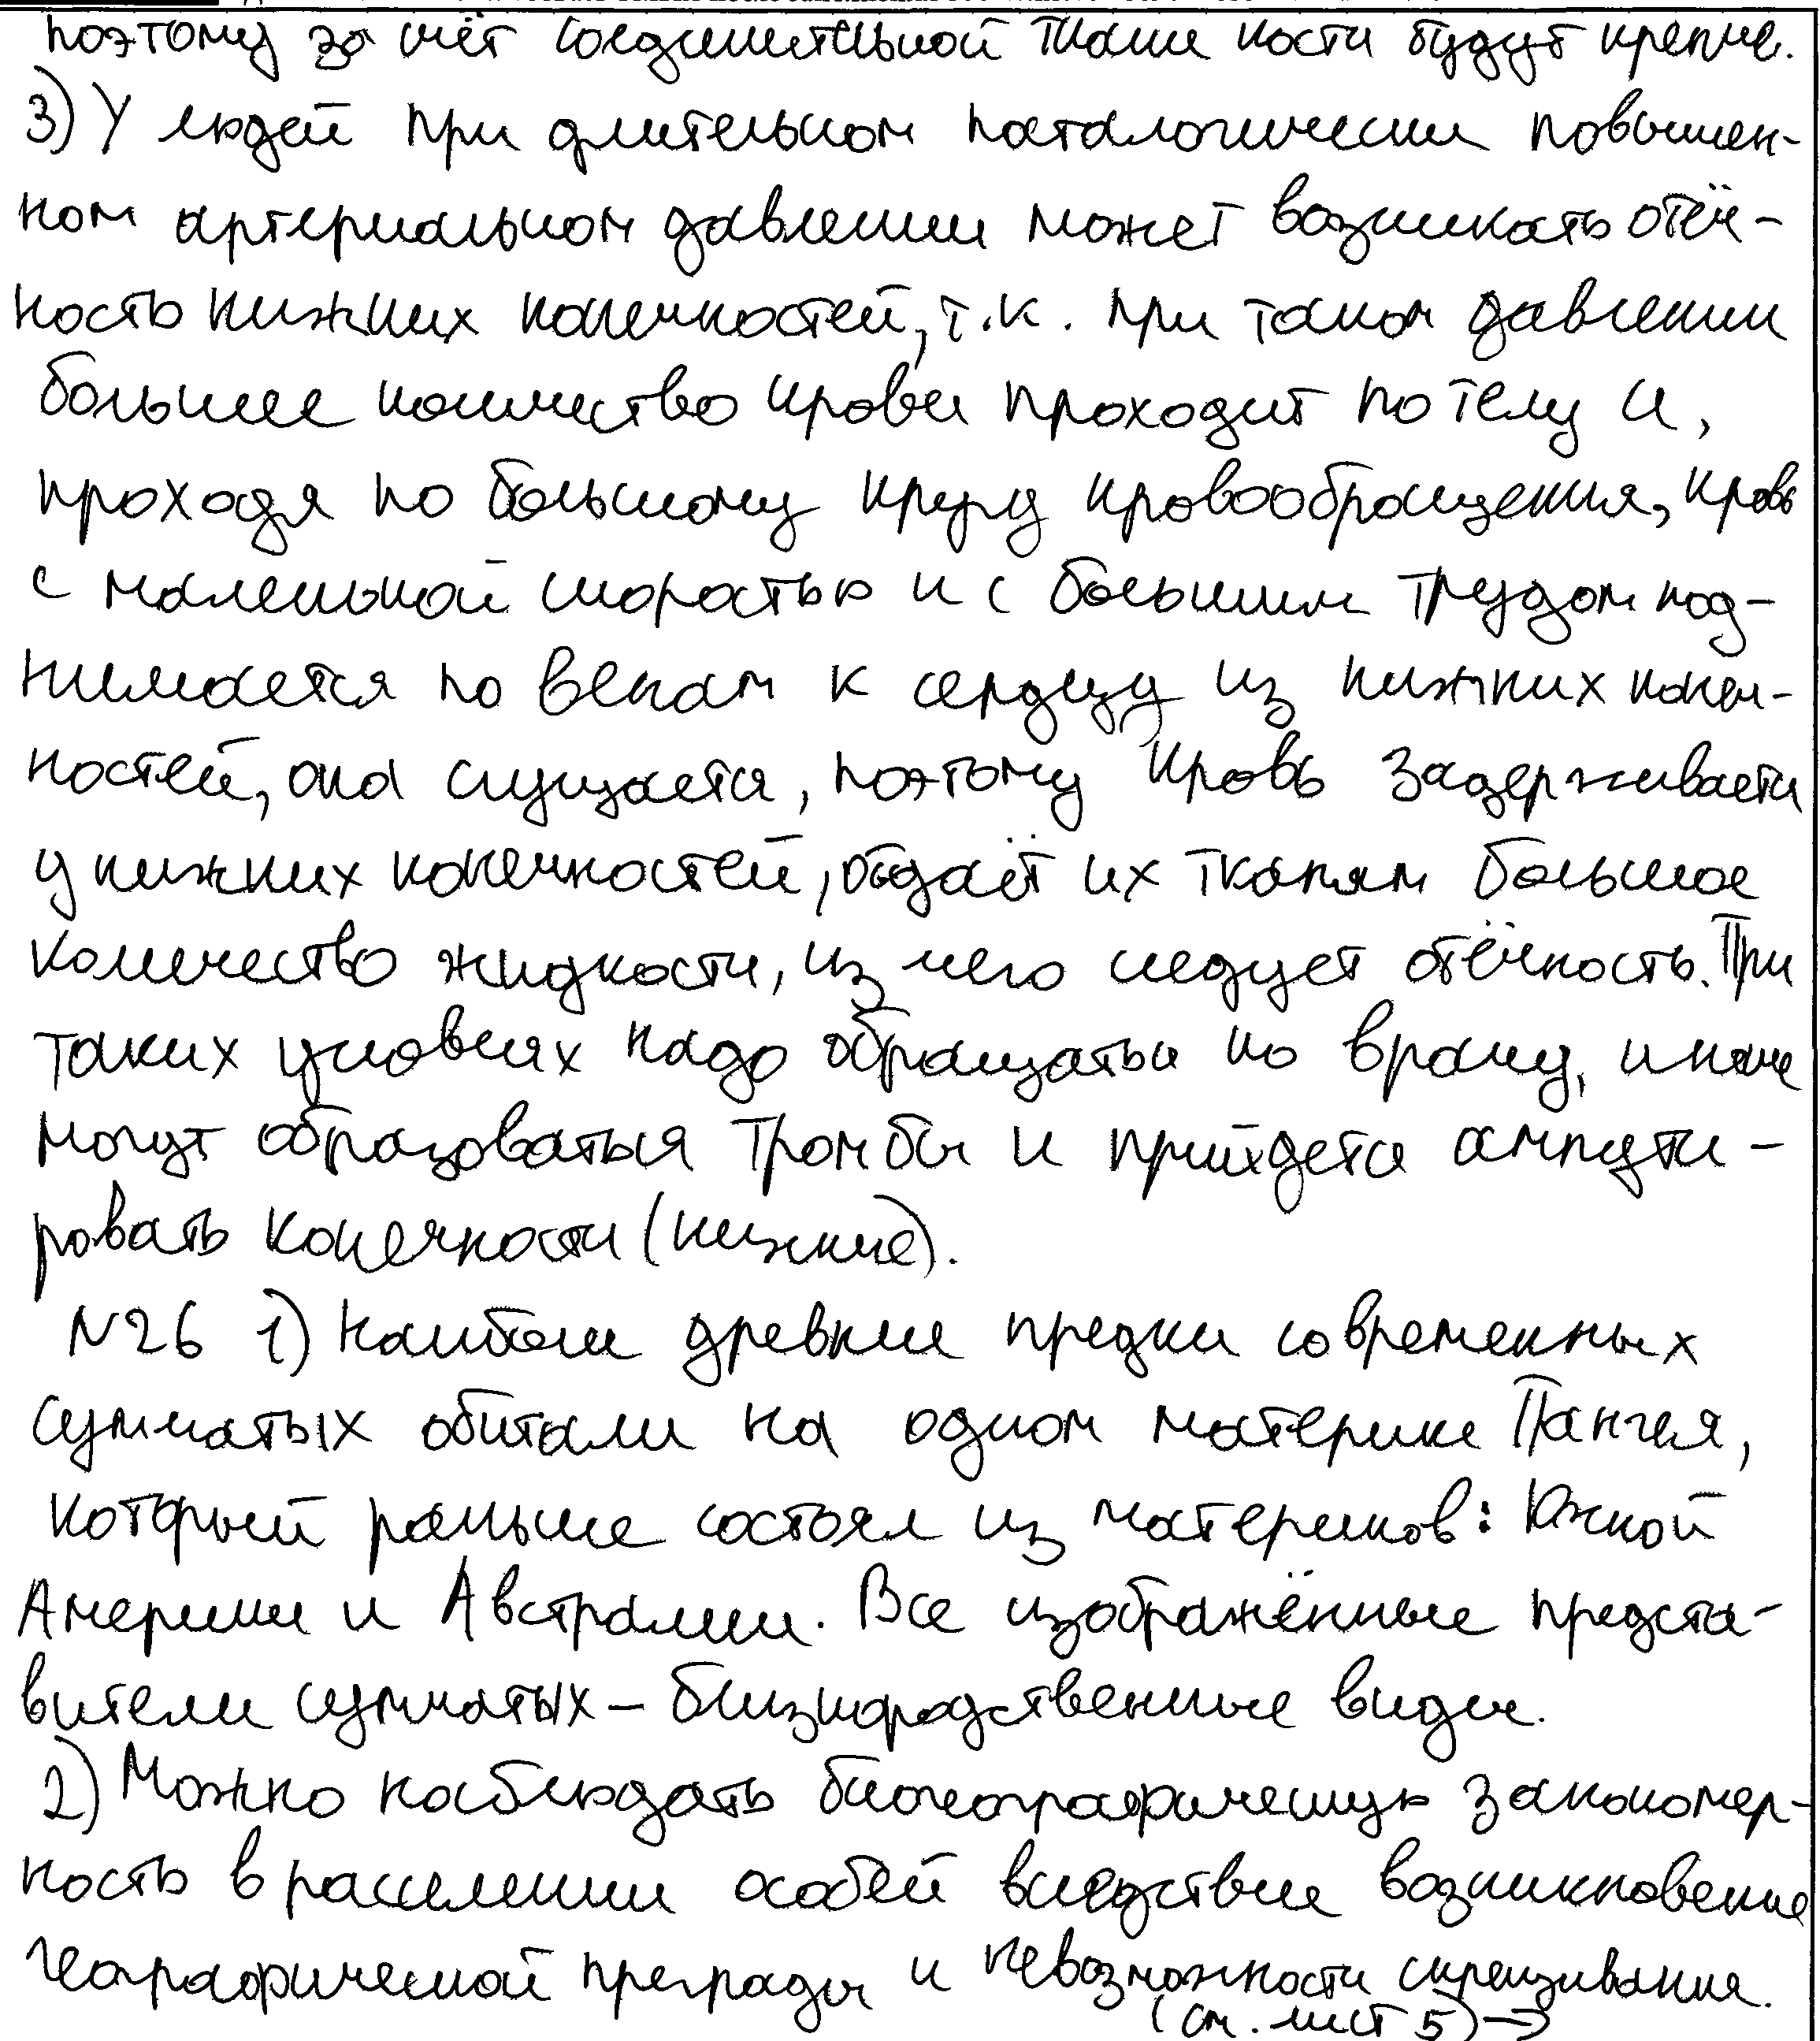 поэтому за счёт соединительной ткани кости будут крепче.
3) У людей при длительном паталогически повышен-
ном артериальном давлении может возникать отёч-
ность нижних конечностей, т.к. при таком давлении
большее количество крови проходит по телу и,
проходя по большому кругу кровообращения, кровь
с маленькой скоростью и с большим трудом под-
нимается по венам к сердцу из нижних конеч-
ностей, она сгущается, поэтому кровь задерживается
у нижних конечностей, отдаёт их тканям большое
количество жидкости, из чего следует отёчность. При
таких условиях надо обращаться ко врачу, иначе
могут образоваться тромбы и прийдется ампути-
ровать конечности (нижние).
N26 1) Наиболее древние предки современных
сумчатых обитали на одном материке Пангея,
который раньше состоял из материков: Южной
Америки и Австралии. Все изображённые предста-
вители сумчатых - близкородственные виды.
2) Можно наблюдать биогеографическую закономер-
ность в расселении особей вследствие возникновение
географической преграды и невозможности скрещивания.
(см. лист 5) →